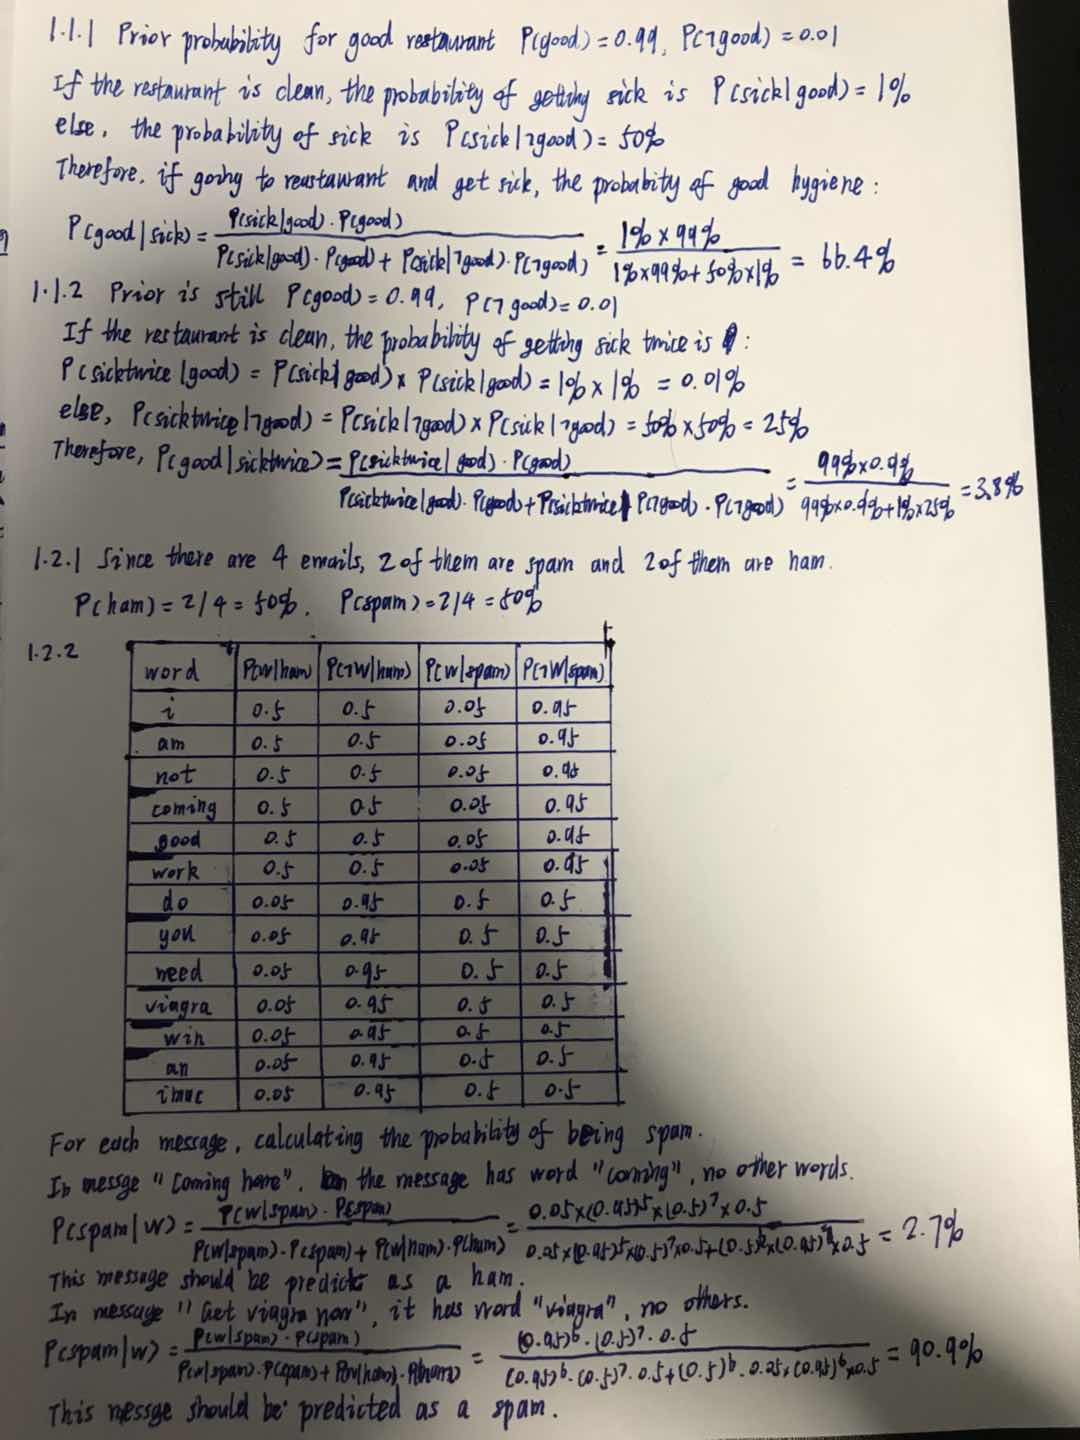 1.1.1 Prior probability for good restaurant P(good)=0.99, P(¬good)=0.01
If the restaurant is clean, the probability of getting sick is P(sick|good)=1%
else, the probability of sick is P(sick|¬good)=50%
Therefore, if going to reustawrant and get sick, the probabity of good hygiene:
P(good|sick)= P(sick|good)·P(good) / P(sick|good)·P(good)+P(sick|¬good)·P(¬good) = 1%×99% / 1%×99%+50%×1% = 66.4%
1.1.2 Prior is still P(good)=0.99, P(¬good)=0.01
If the restaurant is clean, the probability of getting sick twice is:
P(sicktwice|good)=P(sick|good)×P(sick|good)=1%×1%=0.01%
else, P(sicktwice|¬good)=P(sick|¬good)×P(sick|¬good)=50%×50%=25%
Therefore, P(good|sicktwice)= P(sicktwice|good)·P(good) / P(sicktwice|good)·P(good)+P(sicktwice|P(¬good)·P(¬good) = 99%×0.01% / 99%×0.01%+1%×25% =3.8%
1.2.1 Since there are 4 emails, 2 of them are spam and 2 of them are ham.
P(ham)=2/4=50%. P(spam)=2/4=50%
1.2.2
word P(W|ham) P(¬W|ham) P(W|spam) P(¬W|spam)
i 0.5 0.5 0.05 0.95
am 0.5 0.5 0.05 0.95
not 0.5 0.5 0.05 0.95
coming 0.5 0.5 0.05 0.95
good 0.5 0.5 0.05 0.95
work 0.5 0.5 0.05 0.95
do 0.05 0.95 0.5 0.5
you 0.05 0.95 0.5 0.5
need 0.05 0.95 0.5 0.5
viagra 0.05 0.95 0.5 0.5
win 0.05 0.95 0.5 0.5
an 0.05 0.95 0.5 0.5
0.05 0.95 0.5 0.5
For each message, calculating the probability of being spam.
In messge "Coming home", the message has word "coming", no other words.
P(spam|W)= P(W|spam)·P(spam) / P(W|spam)·P(spam)+P(W|ham)·P(ham) = 0.05×(0.95)^5×(0.5)^7×0.5 / 0.05×(0.95)^5×(0.5)^7×0.5+(0.5)^6×(0.95)^7×0.5 = 2.7%
This message should be predict as a ham.
In message "Get viagra now", it has word "viagra", no others.
P(spam|W)= P(W|spam)·P(spam) / P(W|spam)·P(spam)+P(W|ham)·P(ham) = (0.95)^6·(0.5)^7·0.5 / (0.95)^6·(0.5)^7·0.5+(0.5)^6·0.05×(0.95)^6×0.5 = 90.9%
This messge should be predicted as a spam.